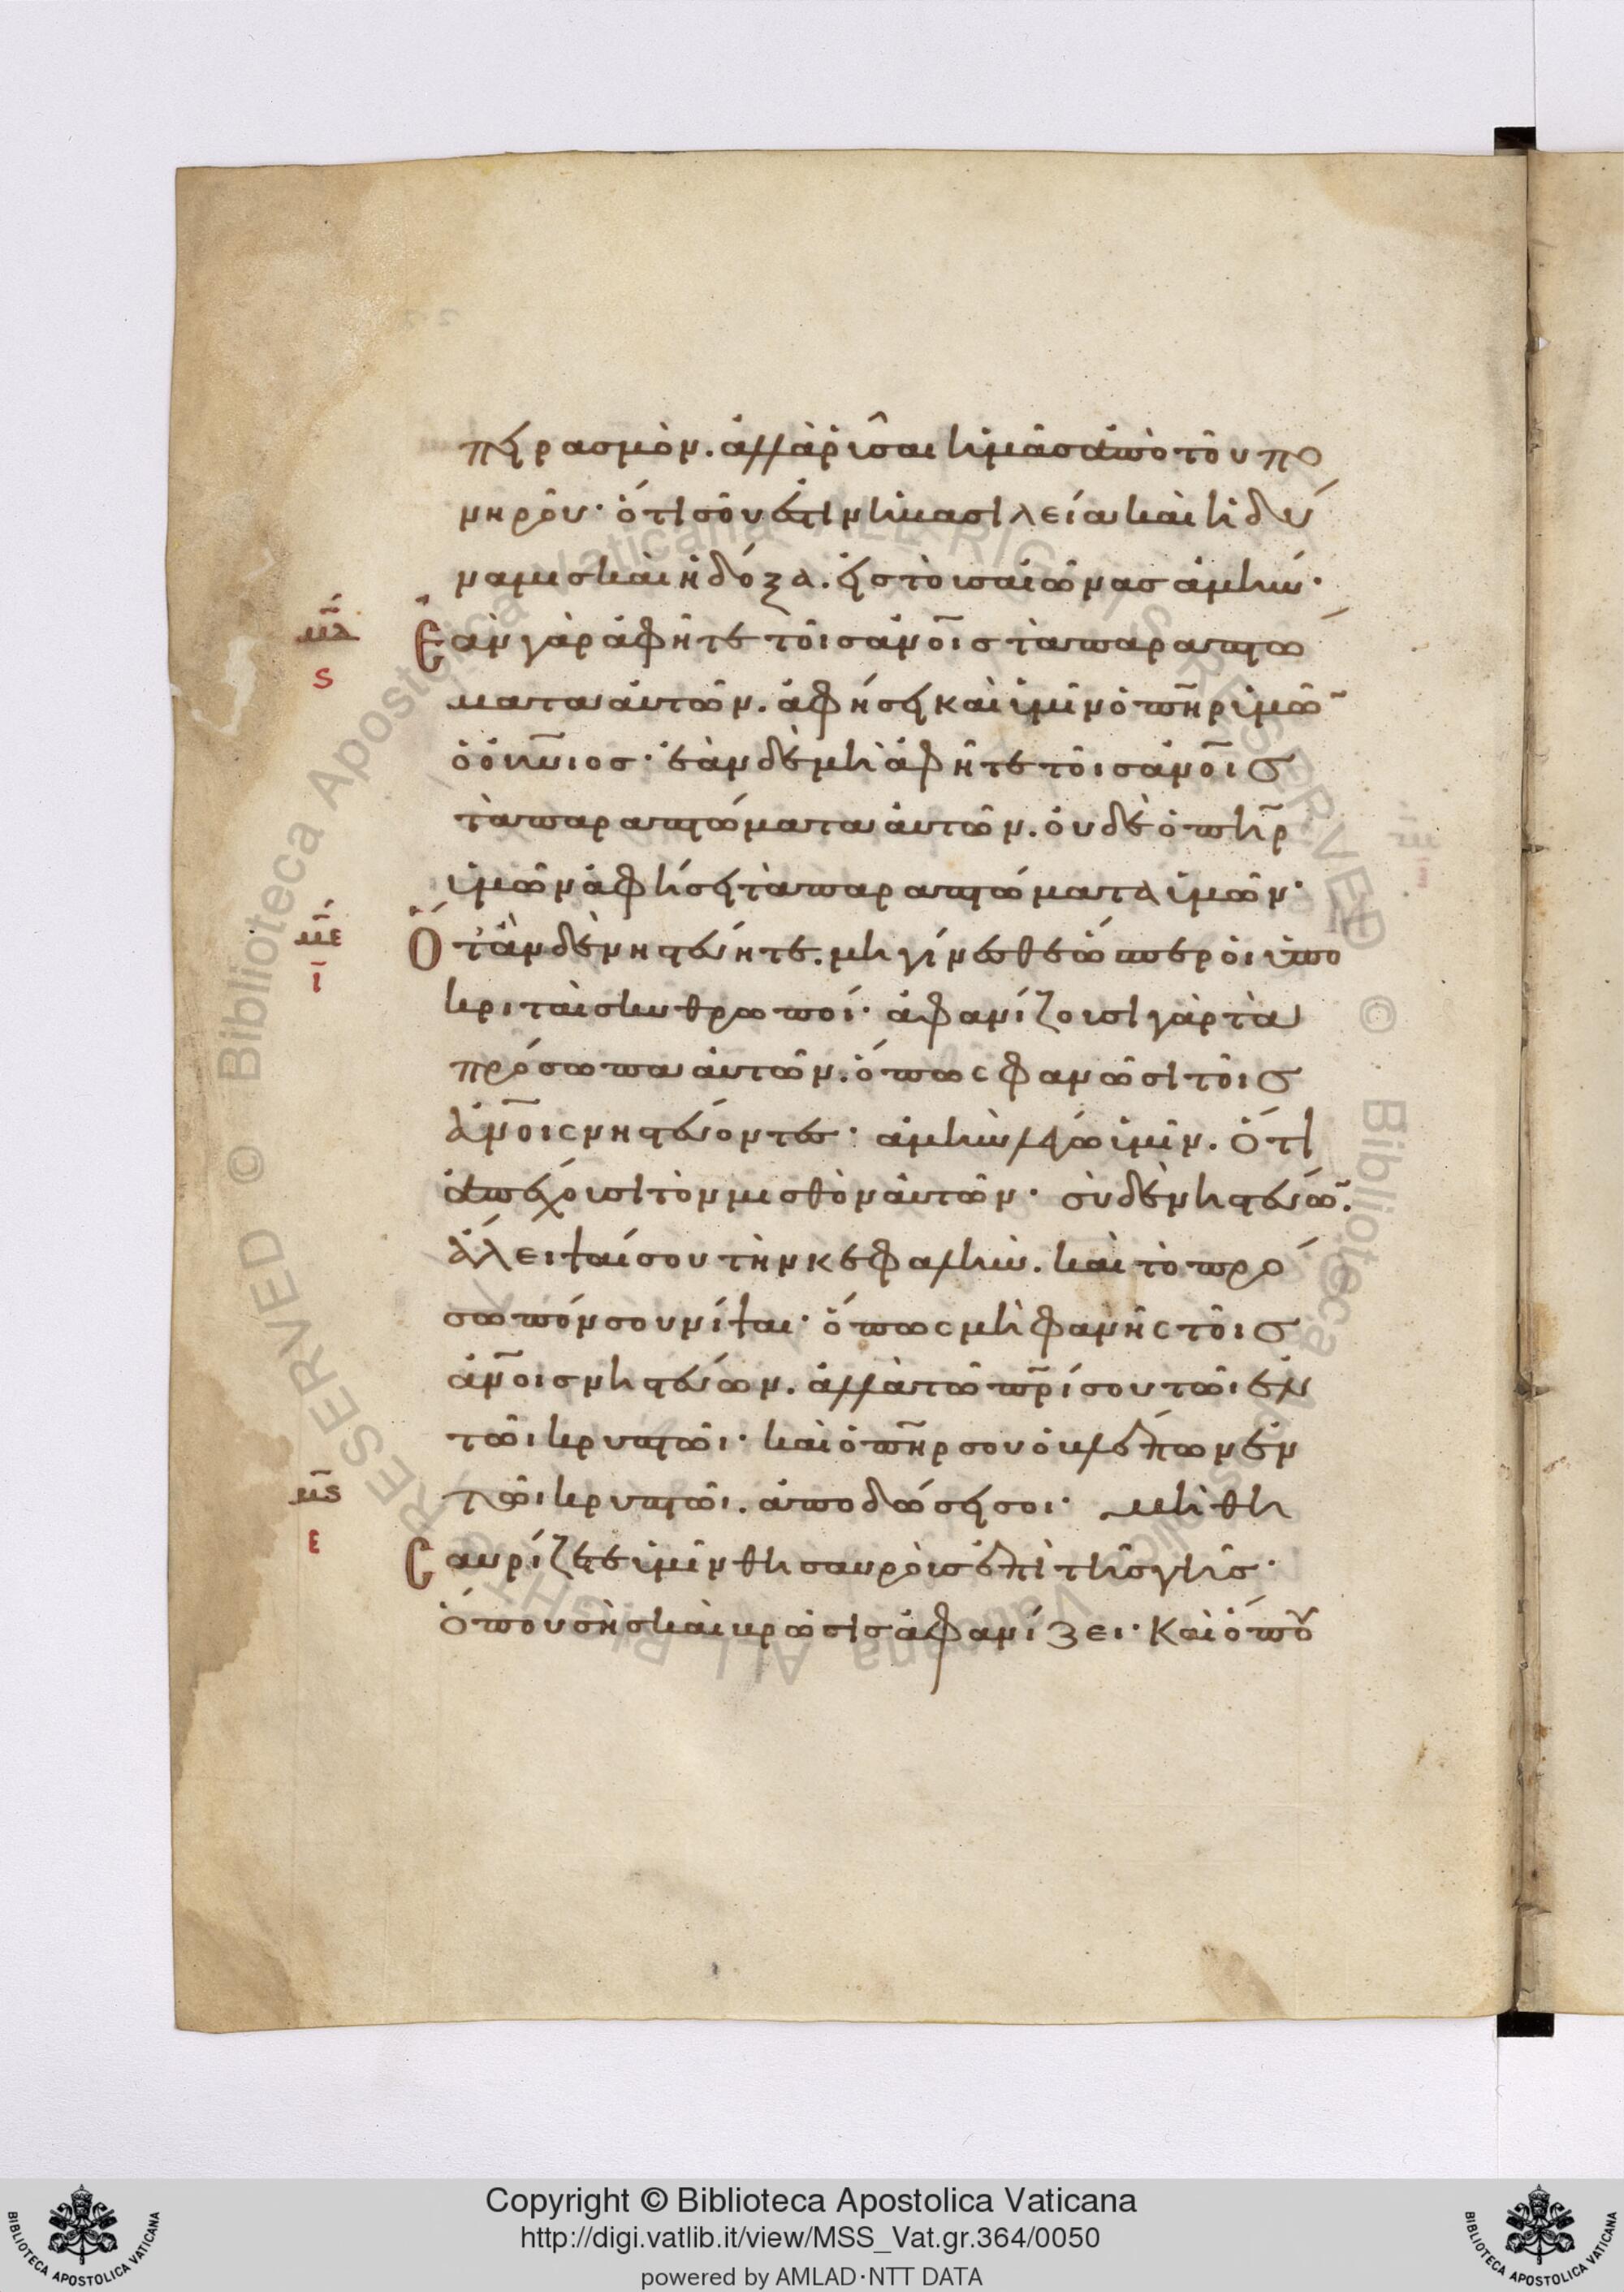 πειρασμὸν. ἀλλὰ ῥῦσαι ἡμᾶς ἀπὸ τοῦ πο
νηροῦ· ὅτι σοῦ ἐστὶν ἡ βασιλεία καὶ ἡ δύ
ναμις καὶ ἡ δόξα. εἰς τοὺς αἰῶνας ἀμήν·
μ̅δ̅
Ἐὰν γὰρ ἀφῆτε τοῖς ἀν̅οις τὰ παραπτώ
ς
ματα αὐτῶν. ἀφήσει καὶ ὑμῖν ὁ πη̅ρ ὑμῶ̅
ὁ οὐν̅ιος· ἐὰν δὲ μὴ ἀφῆτε τοῖς ἀν̅οις
τὰ παραπτώματα αὐτῶν. οὐδὲ ὁ πη̅ρ
ὑμῶν ἀφήσει τὰ παραπτώματα ὑμῶν·
μ̅ε̅
Ὅτὰν δὲ νηστεύητε. μὴ γίνεσθε ὥσπερ οἱ ὑπο
ι̅
κριταὶ σκυθρωποί· ἀφανίζουσι γὰρ τὰ
πρόσωπα αὐτῶν. ὅπως φανῶσι τοῖς
ἀν̅οις νηστεύοντες· ἀμὴν λέγω ὑμῖν. ὅτι
ἀπέχουσι τὸν μισθὸν αὐτῶν· σὺ δὲ νηστεύω̅.
ἄλειψαί σου τὴν κεφαλὴν. καὶ τὸ πρό
σωπόν σου νίψαι· ὅπως μὴ φανῆς τοῖς
ἀν̅οις νηστεύων. ἀλλὰ τῶ πρ̅ί σου τῶι ἐν
τῶι κρυπτῶι· καὶ ὁ πη̅ρ σου ὁ βλέπων ἐν
μ̅ς̅
τῶι κρυπτῶι. ἀποδώσει σοι· μὴ θη
ε
σαυρίζετε ὑμῖν θησαυροὺς ἐπὶ τῆς γῆς·
ὅπου σὴς καὶ βρῶσις ἀφανίζει· Καὶ ὅπου
Copyright © Biblioteca Apostolica Vaticana
http://digi.vatlib.it/view/MSS_Vat.gr.364/0050
powered by AMLAD·NTT DATA
BIBLIOTECA APOSTOLICA VATICANA
BIBLIOTECA APOSTOLICA VATICANA